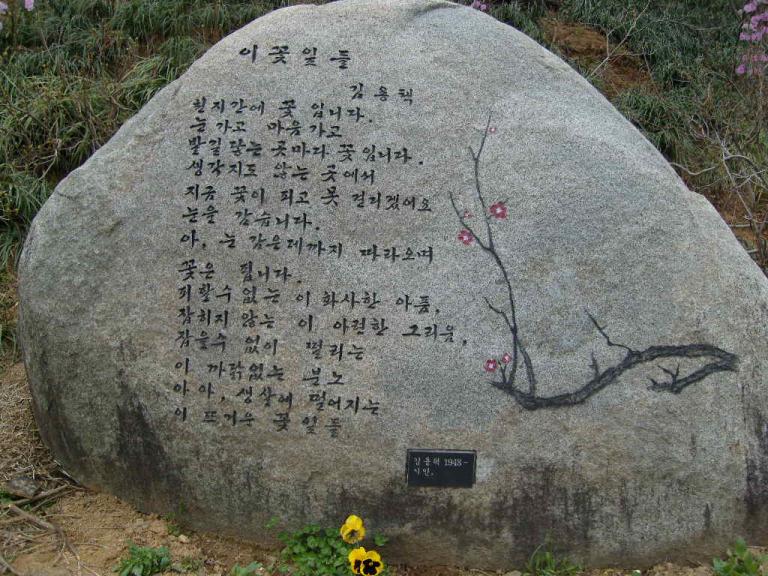 이 꽃잎들
김용택
천지간에 꽃 입니다.
눈 가고 마음가고
발길 닿는 곳마다 꽃입니다.
생각지도 않는 곳에서
지금 꽃이 피고 못 견디겠어요
눈을 감습니다.
아, 눈 감은데까지 따라오며
꽃은 핍니다.
피할수 없는 이 화사한 아픔,
잡히지 않는 이 아련한 그리움,
참을수 없이 떨리는
이 까닭없는 분노
아 아, 생살에 떨어지는
이 뜨거운 꽃잎들
김용택 1948-
시인.